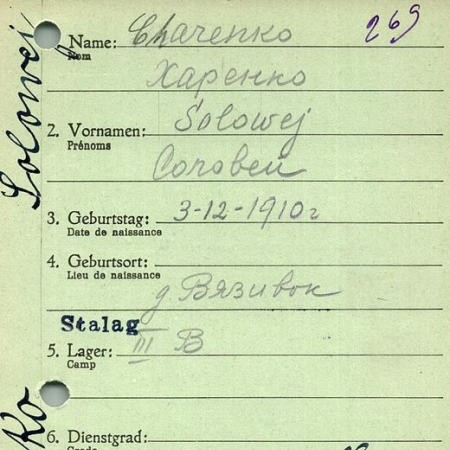 Solowej
269
Name: Charenko
Nom
Харенко
2. Vornamen: Solowej
Prénoms
Соловей
3. Geburtstag: 3-12-1910г
Date de naissance
4. Geburtsort:
Lieu de naissance
д Вязивок
Stalag
5. Lager: III B
Camp
ko
6. Dienstgrad: